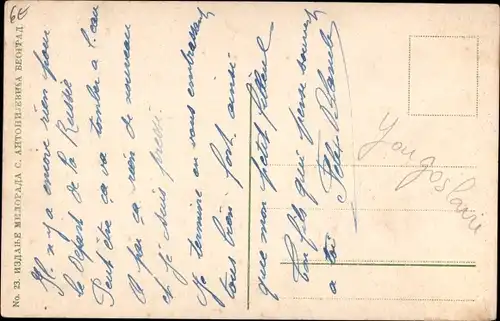 Il n'y a encore rien pour
le départ de la Russie
Peut être ça va tomber à l'eau
A part ça rien de nouveau
et je suis pressé.
Je termine en vous embrassant
tous bien fort ainsi
que mon petit filleul
Ton fils qui pense souvent
a toi
Yougoslavie
No. 23. ИЗДАЊЕ МИЛОРАДА С. АНТОНИЈЕВИЋА БЕОГРАД